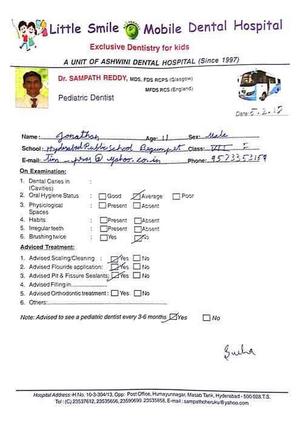 Little Smile Mobile Dental Hospital
Exclusive Dentistry for kids
A UNIT OF ASHWINI DENTAL HOSPITAL (Since 1997)
Dr. SAMPATH REDDY, MDS, FDS RCPS (Glasgow)
MFDS RCS (England)
Pediatric Dentist
Date: 5.2.15
Name: Jonathan Age: 11 Sex: Male
School: Hyderabad Public School Begumpet Class: VII
E-mail: @yahoo.co.in Phone:
On Examination:
1. Dental Caries in :
(Cavities)
2. Oral Hygiene Status : Good Average Poor
3. Physiological : Present Absent
Spaces
4. Habits : Present Absent
5. Irregular teeth : Present Absent
6. Brushing twice : Yes No
Adviced Treatment:
1. Advised Scaling/Cleaning : Yes No
2. Advised Flouride application: Yes No
3. Advised Pit & Fissure Sealants: Yes No
4. Advised Filling in
5. Advised Orthodontic treatment : Yes No
6. Others:
Note: Advised to see a pediatric dentist every 3-6 months Yes No
Hospital Address: H.No. 10-3-304/13, Opp: Post Office, Humayunnagar, Masab Tank, Hyderabad - 500 028.T.S.
Tel : (C) 23537612, 23535656, 23590693 23535658, E-mail : sampathcheruku@yahoo.com